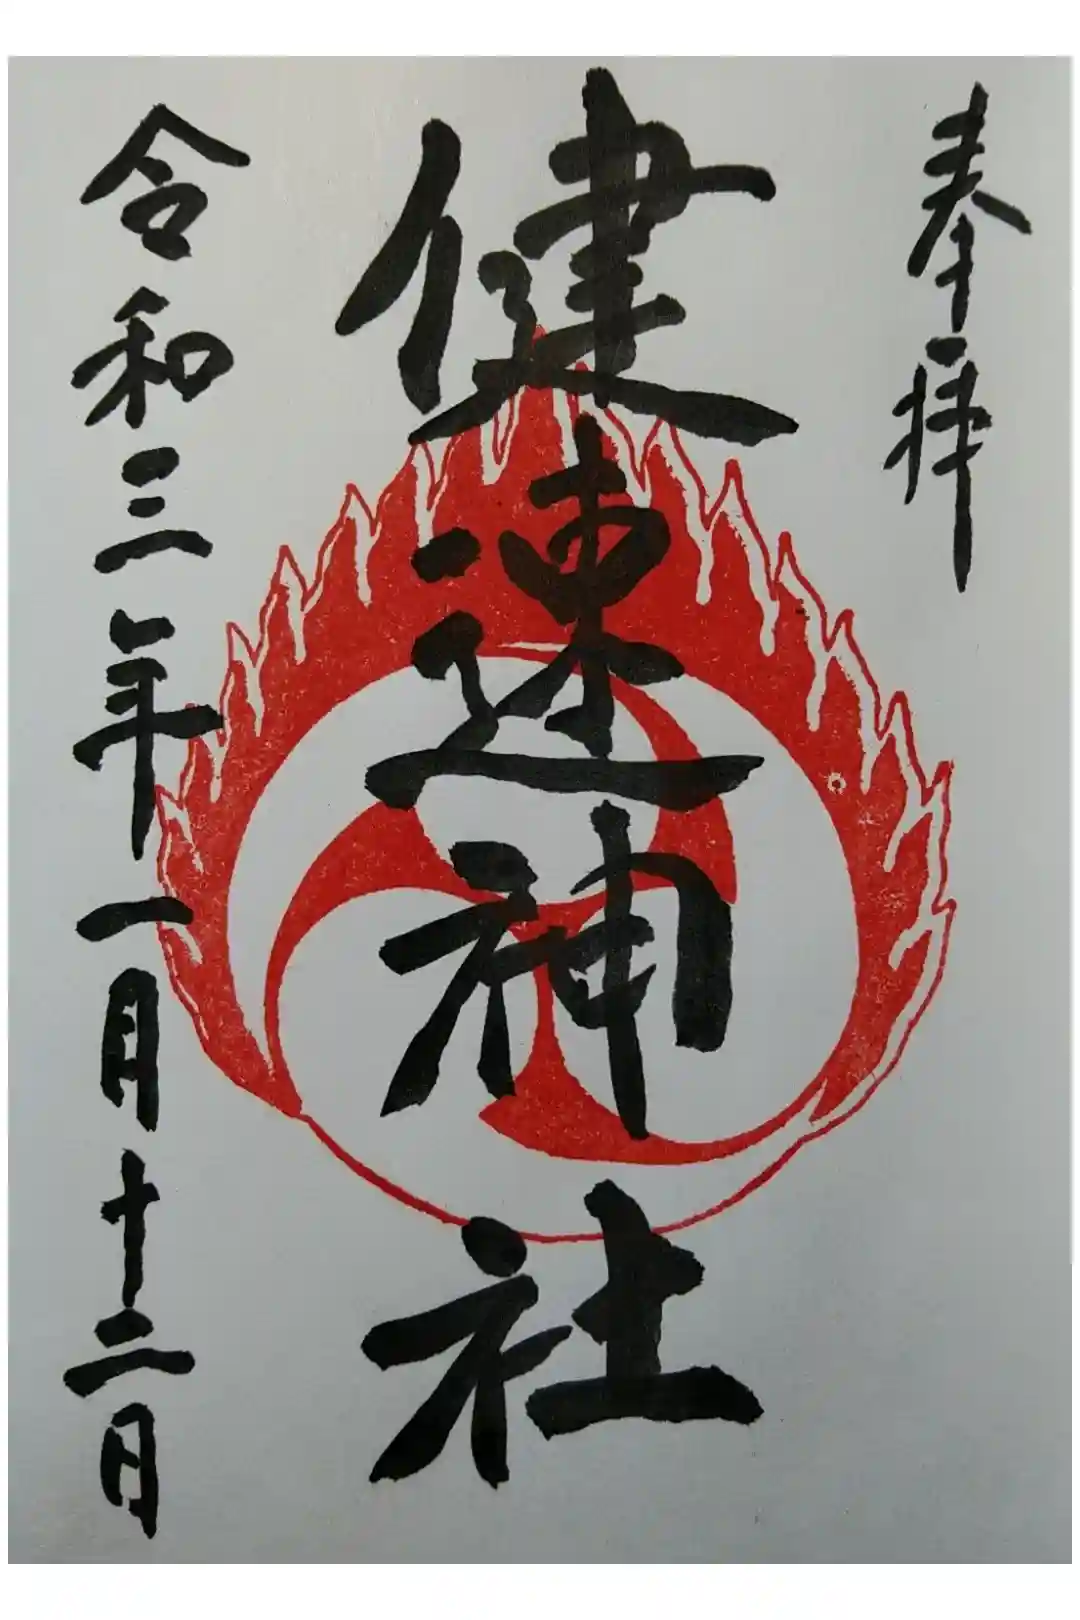 奉拝
健速神社
令和三年一月十二日